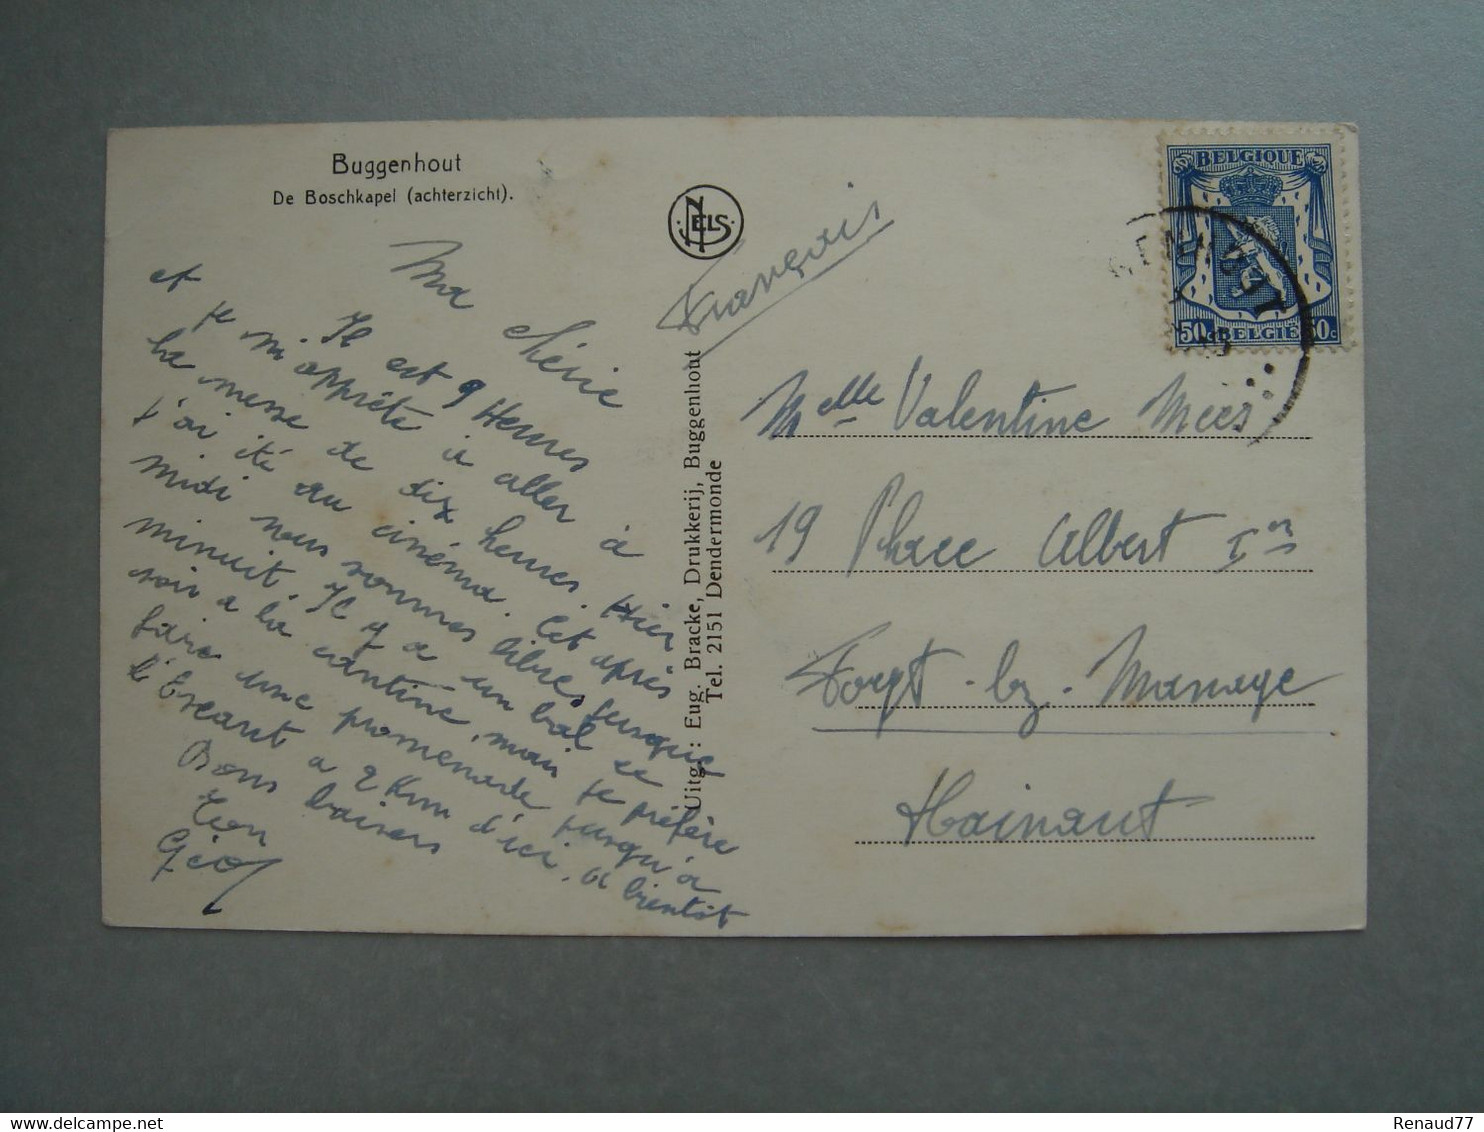 Buggenhout
De Boschkapel (achterzicht).
NELS
BELGIQUE
50c BELGIE 50c
François
Ma chérie
Il est 9 Heures
et je m'apprête à aller à
la messe de dix heures. Hier
j'ai été au cinéma. Cet après
midi nous sommes libres jusque
minuit. Il y a un bal ce
soir a la cantine, mais je préfère
faire une promenade jusqu'a
l'Escaut a 2 Km d'ici. a bientôt
Bons baisers
Ton
Géo
Uitg.: Eug. Bracke, Drukkerij, Buggenhout
Tel. 2151 Dendermonde
Melle Valentine Mees
19 Place Albert Ier
Fayt-lez-Manage
Hainaut
Renaud77